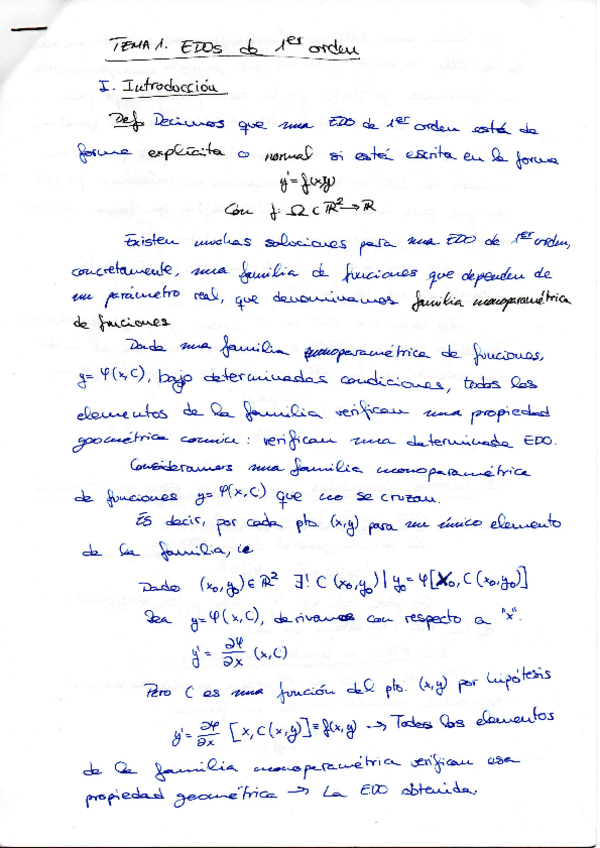 TEMA 1. EDOs de 1er orden
I. Introducción
Def Decimos que una EDO de 1er orden está de
forma explícita o normal si está escrita en la forma
y'=f(x,y)
Con f: Ω⊂ℝ²→ℝ
Existen muchas soluciones para una EDO de 1er orden,
concretamente, una familia de funciones que dependen de
un parámetro real, que denominamos familia monoparamétrica
de funciones
Dada una familia monoparamétrica de funciones,
y=φ(x,C), bajo determinadas condiciones, todos los
elementos de la familia verifican una propiedad
geométrica común: verifican una determinada EDO.
Consideramos una familia monoparamétrica
de funciones y=φ(x,C) que no se cruzan.
Es decir, por cada pto. (x,y) para un único elemento
de la familia, ie
Dado (x₀,y₀)∈ℝ² ∃! C(x₀,y₀) | y₀=φ[x₀,C(x₀,y₀)]
Sea y=φ(x,C), derivamos con respecto a "x".
y'=∂φ/∂x (x,C)
Pero C es una función del pto. (x,y) por hipótesis
y'=∂φ/∂x [x,C(x,y)]≡f(x,y) → Todos los elementos
de la familia monoparamétrica verifican esa
propiedad geométrica → La EDO obtenida.